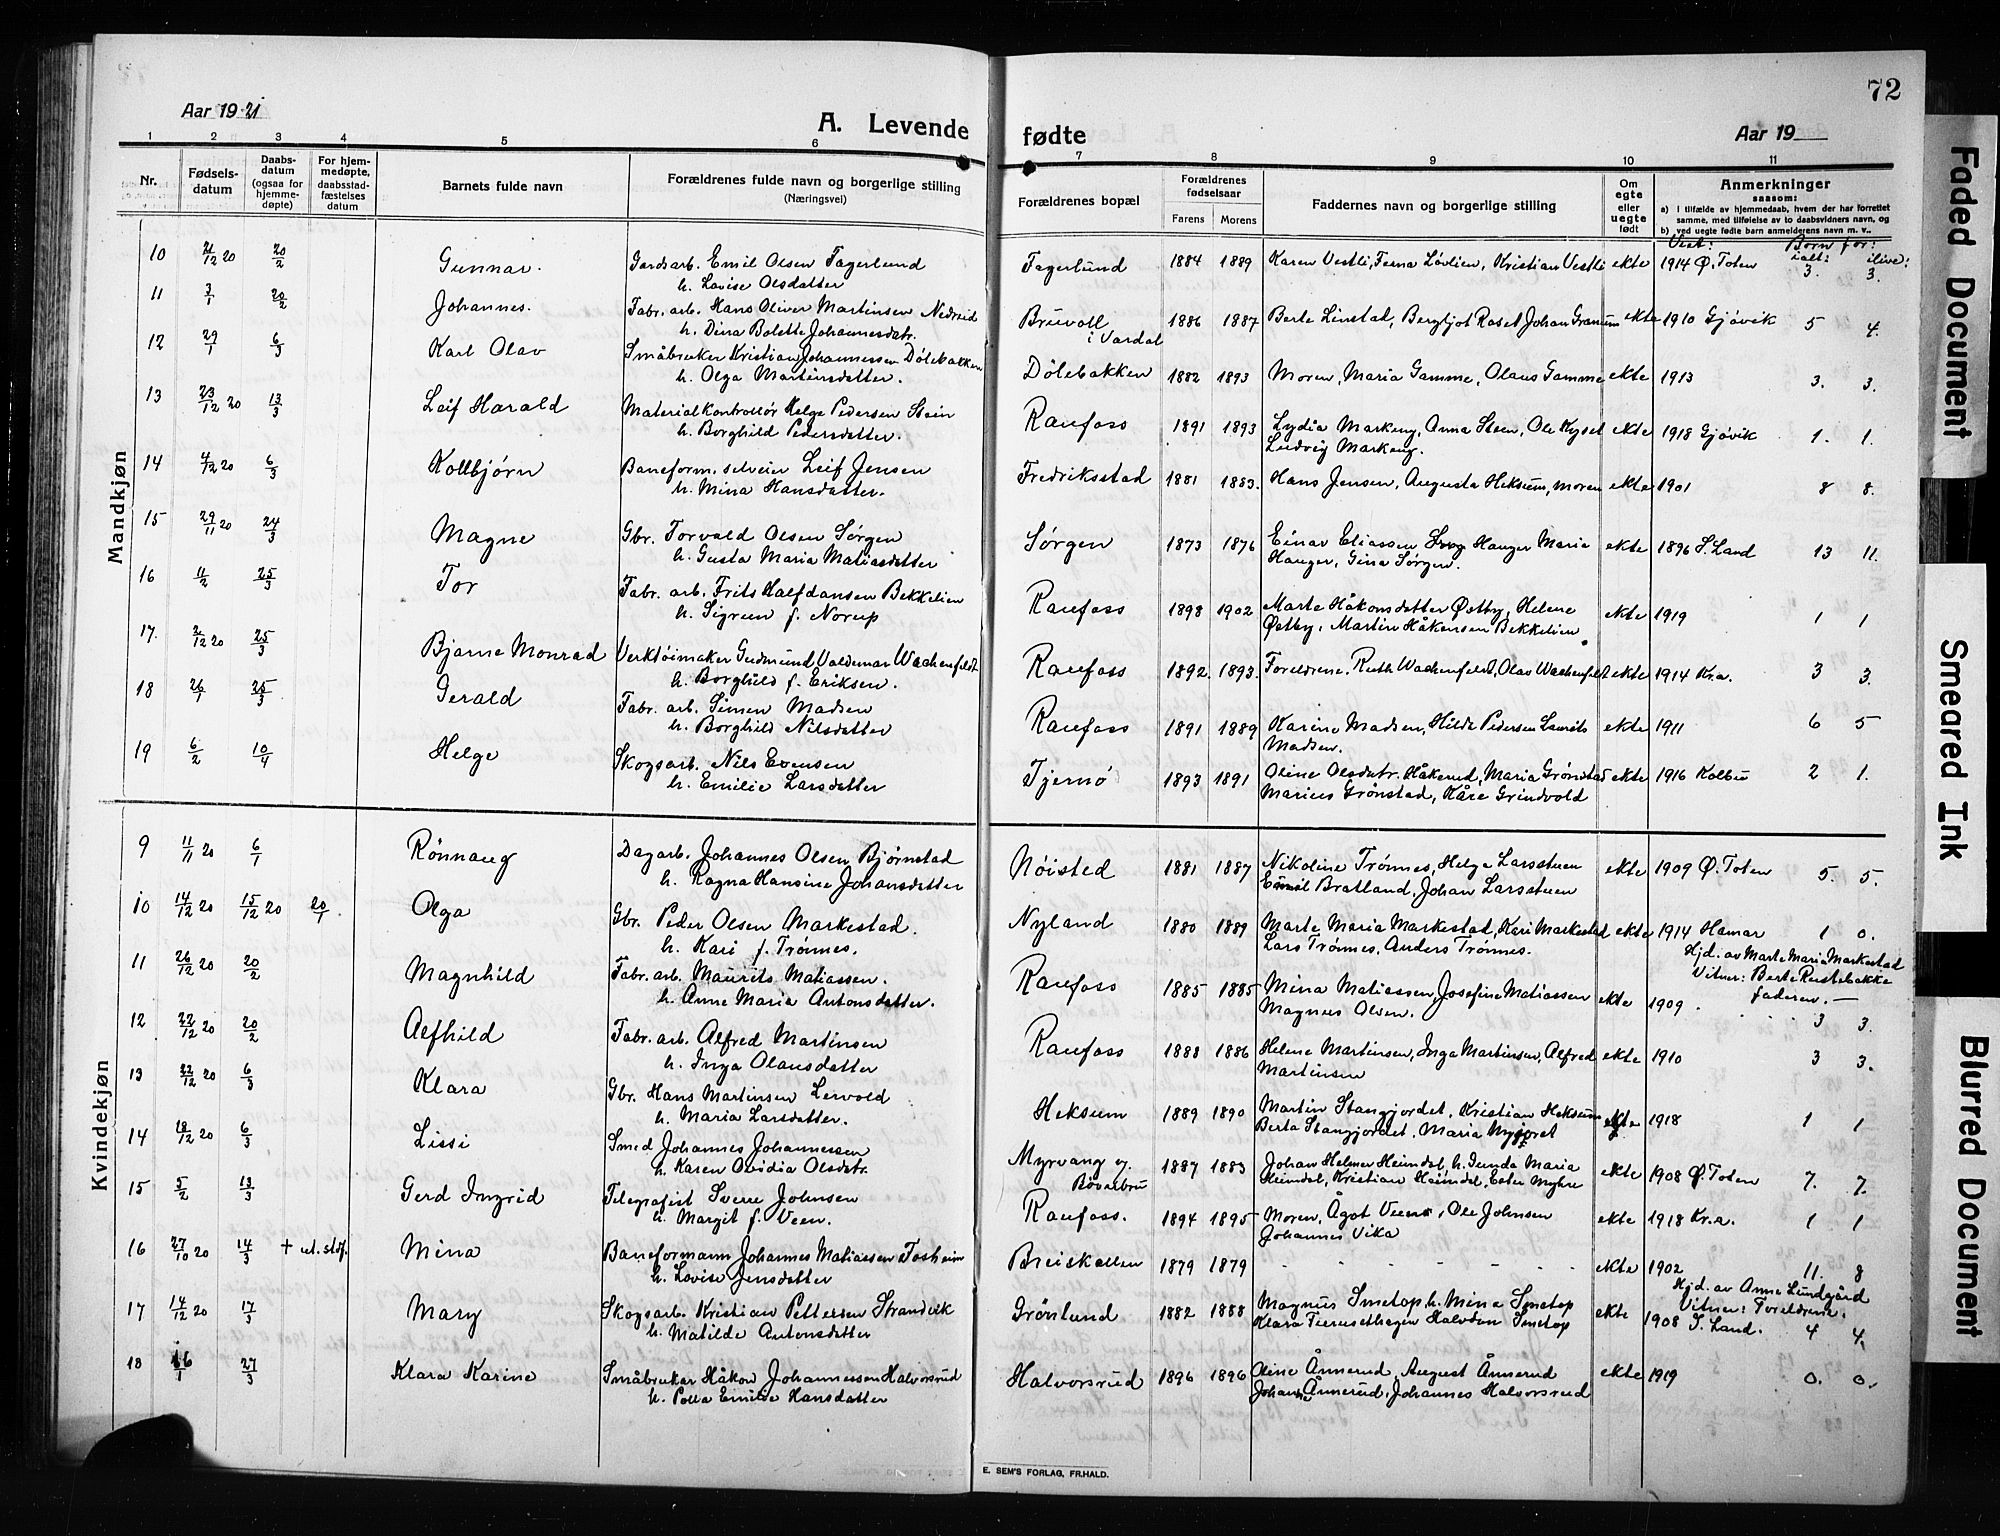 72
Aar 1921
A. Levende fødte
Aar 19
1 2 3 4 5 6 7 8 9 10 11
Nr.
Fødsels-
datum
Daabs-
datum
(ogsaa for
hjemme-
døpte)
For hjem-
medøpte,
daabsstad-
fæstelses
datum
Barnets fulde navn
Forældrenes fulde navn og borgerlige stilling
(Næringsvei)
Forældrenes bopæl
Forældrenes
fødselsaar
Farens Morens
Faddernes navn og borgerlige stilling
Om
egte
eller
uegte
født
Anmerkninger
saasom:
a) i tilfælde av hjemmedaab, hvem der har forrettet
samme, med tilføielse av to daabsvidners navn, og
b) ved uegte fødte barn anmelderens navn m. v..
Viet: Born før:
ialt: ilive:
Mandkjøn
10 21/12 20 20/2 Gunnar. Gardsarb. Emil Olsen Fagerlund Fagerlund 1884 1889 Karen Vestli, Kristian Vestli ekte 1914 Ø. Toten 3. 3.
h. Lovise Olsdatter
11 3/1 20/2 Johannes. Fabr. arb. Hans Oliver Martinsen Nedreid Bruvoll 1886 1887 Berte Linstad, Bergljot Roset Johan Granum ekte 1910 Gjøvik 5 4.
h. Dina Bolette Johannesdatr. i Vardal
12 29/1 6/3 Karl Olav Småbruker Kristian Johannessen Dølebakken Dölebakken 1882 1893 Moren, Maria Gamme, Olaus Gamme ekte 1913 3. 3.
h. Olga Martinsdatter.
13 23/12 20 13/3 Leif Harald Materialkontrollör Helge Pedersen Stein Raufoss 1891 1893 Lydia Markeng, Anna Steen, Ole Kyset ekte 1918 Gjøvik 1. 1.
h. Borghild Pedersdatter. Ludvig Markeng.
14 4/12 20 6/3 Kolbjørn Baneform. selveier Leif Jensen Fredriksstad 1881 1883. Hans Jensen, Augusta Heksum, moren ekte 1901 8 8.
h. Mina Hansdatter.
15 29/11 20 24/3 Magne Gbr. Torvald Olsen Sørgen Sørgen 1873 1876 Einar Eliassen Hanger Maria ekte 1896 S. Land 13 11.
h. Gusta Maria Matiasdatter Hanger, Gina Sørgen.
16 11/2 25/3 Tor Fabr. arb. Frits Halfdansen Bekkelien Raufoss 1898 1902 Marte Håkonsdatter Østby, Helene ekte 1919 1 1
h. Sigrun f. Norup Østby, Martin Håkensen Bekkelien
17. 2/12 20 25/3 Bjarne Monrad Verktøimaker Gudmund Valdemar Wachenfeldt Raufoss 1892. 1893. Foreldrene. Ruth Wachenfeldt, Olav Wachenfeldt ekte 1914 Kr.a. 3 3.
h. Borghild f. Eriksen.
18 26/1 25/3 Gerald Fabr. arb. Simen Madsen Raufoss 1891 1889 Karine Madsen, Hilda Pedersen Laurits ekte 1911 6 5
h. Borghild Nilsdatter Madsen.
19 6/2 10/4 Helge Skogsarb. Nils Evensen Tjernö 1893 1891 Oline Olsdatr. Håkerud, Maria Grønstad ekte 1916 Kolbu 2 1.
h. Emilie Larsdatter Marius Grønstad, Kåre Grindvold
Kvindekjøn
9 11/11 20 6/1 Rönnaug Dagarb. Johannes Olsen Bjørnstad Nöisted 1881 1887 Nikoline Trønnes, Helga Larsstuen ekte 1909 Ø. Toten 5. 5.
h. Ragna Hansine Johansdatter Emil Bratland, Johan Larsstuen
10 14/12 20 15/12 20 20/1. Olga Gbr. Peder Olsen Markestad. Nyland 1880 1889 Marte Maria Markestad, Kari Markestad ekte 1914 Hamar 1 0.
h. Kari f. Trønnes. Lars Trønnes, Anders Trønnes. Hjd. av Marte Maria Markestad
Vitner: Berte Rustebakke
faderen. —
11 26/12 20 20/2 Magnhild Fabr. arb. Maurits Matiassen. Raufoss 1885 1885 Mina Matiassen, Josefine Matiassen ekte 1909 3 3.
h. Anne Maria Antonsdatter. Magnus Olsen.
12 22/12 20 20/2 Alfhild Fabr. arb. Alfred Martinsen Raufoss 1888 1886 Helene Martinsen, Inga Martinsen, Alfred ekte 1910 3 3.
h. Inga Olausdatter Martinsen
13 22/12 20 6/3 Klara Gbr. Hans Martinsen Lervold Heksum 1889 1890 Martin Stangjordet, Kristian Heksum ekte 1918 1 1
h. Maria Larsdatter. Berta Stangjordet, Maria Nyjoret
14 18/12 20 6/3 Lissi Smed Johannes Johannessen Myrvang ej. 1887 1883 Johan Helmer Heimdal, h. Gunda Maria ekte 1908 Ø. Toten 7. 7.
h. Karen Ovidia Olsdtr. Böverbru Heimdal, Kristian Heimdal, Ester Myhre
15 5/2 13/3 Gerd Ingrid Telegrafist Sverre Johnsen Raufoss. 1894 1895 Moren, Ågot Veen, Ole Johnsen ekte 1918 Kr.a. 1 1
h. Margit f. Veen. Johannes Vika
16 27/10 20 14/3 + ut. stof. Mina Baneformann Johannes Matiassen Tosheim Breiskallen 1879 1879 - - - - - - ekte 1902 11. 8
h. Lovise Jensdatter
17 14/12 20 17/3 Mary Skogsarb. Kristian Pettersen Strandvik Grönlund 1882 1888 Magnus Smetop, h. Mina Smetop ekte 1908 S. Land. 4 4.
h. Matilde Antonsdatter Halvdan Smetop Hjd. av Anne Lundgård
Vitner: Foreldrene.
18 16/1 27/3 Klara Karine Småbruker Håkon Johannessen Halvorsrud Halvorsrud 1896 1896 Oline Ånnerud, August Ånnerud ekte 1919 0. 0.
h. Polla Emilie Hansdatter Johan Ånnerud, Johannes Halvorsrud
E. SEM'S FORLAG, FR.HALD.
Faded Document
Smeared Ink
Blurred Document